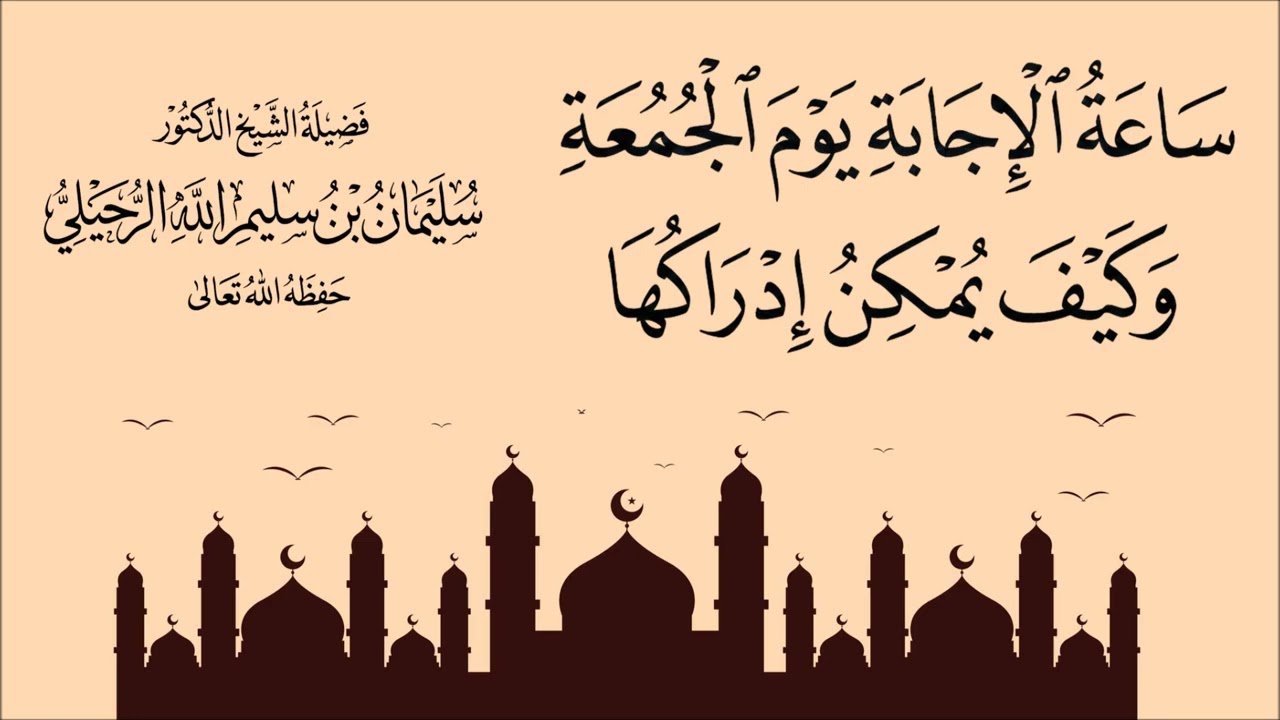 سَاعَةُ ٱلْإِجَابَةِ يَوْمَ ٱلْجُمُعَةِ
وَكَيْفَ يُمْكِنُ إِدْرَاكُهَا
فَضِيلَةُ الشَّيْخِ الدُّكْتُورْ
سُلَيْمَانُ بْنُ سَلِيمِ اللَّهِ الرُّحَيْلِيُّ
حَفِظَهُ اللهُ تَعَالَى